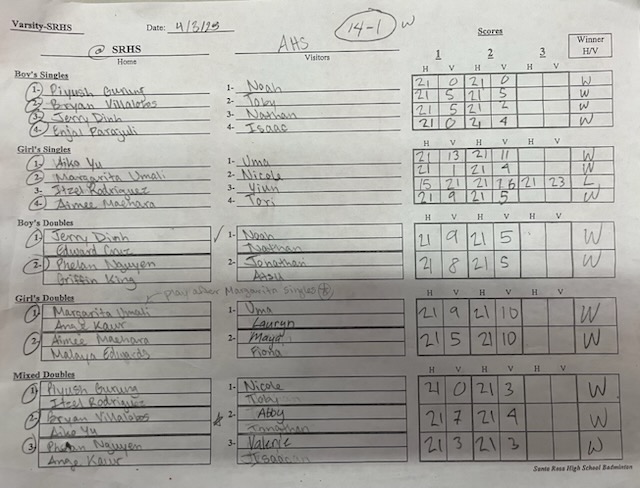 Varsity-SRHS Date: 4/3/23 14-1 W
@ SRHS AHS Scores Winner
Home Visitors 1 2 3 H/V
Boy's Singles H V H V H V
1- Piyush Gurung 1- Noah 21 0 21 0 W
2- Bryan Villalobos 2- Toby 21 5 21 5 W
3- Jerry Dinh 3- Nathan 21 5 21 2 W
4- Enjal Parajuli 4- Isaac 21 0 21 4 W
Girl's Singles H V H V H V
1- Aiko Yu 1- Uma 21 13 21 11 W
2- Margarita Umali 2- Nicole 21 1 21 4 W
3- Itzel Rodriguez 3- 15 21 21 21 23 L
4- Aimee Maehara 4- Tori 21 9 21 5 W
Boy's Doubles H V H V H V
1- Jerry Dinh ✓ 1- Noah 21 9 21 5 W
Edward Cruz Nathan
2- Phelan Nguyen 2- Jonathan 21 8 21 5 W
Griffin King
play after Margarita singles
Girl's Doubles H V H V H V
1- Margarita Umali 1- Uma 21 9 21 10 W
Ange Kaur Lauryn
2- Aimee Maehara 2- Maya 21 5 21 10 W
Malaya Edwards Fiona
Mixed Doubles H V H V H V
1- Piyush Gurung 1- Nicole 21 0 21 3 W
Itzel Rodriguez Toby
2- Bryan Villalobos 2- Abby 21 7 21 4 W
Aiko Yu Jonathan
3- Phelan Nguyen 3- Valerie 21 3 21 3 W
Ange Kaur
Santa Rosa High School Badminton